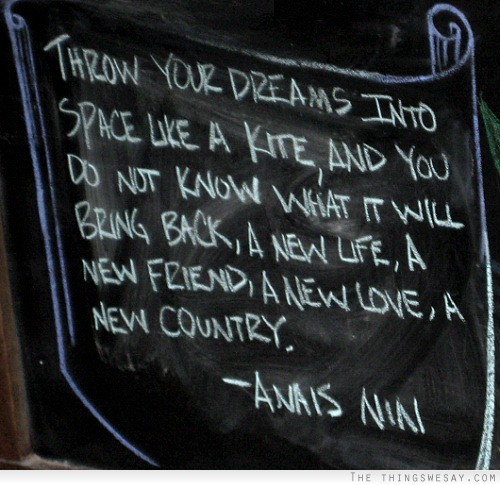 THROW YOUR DREAMS INTO
SPACE LIKE A KITE, AND YOU
DO NOT KNOW WHAT IT WILL
BRING BACK, A NEW LIFE, A
NEW FRIEND, A NEW LOVE, A
NEW COUNTRY.
-ANAIS NIN
THE THINGSWESAY.COM